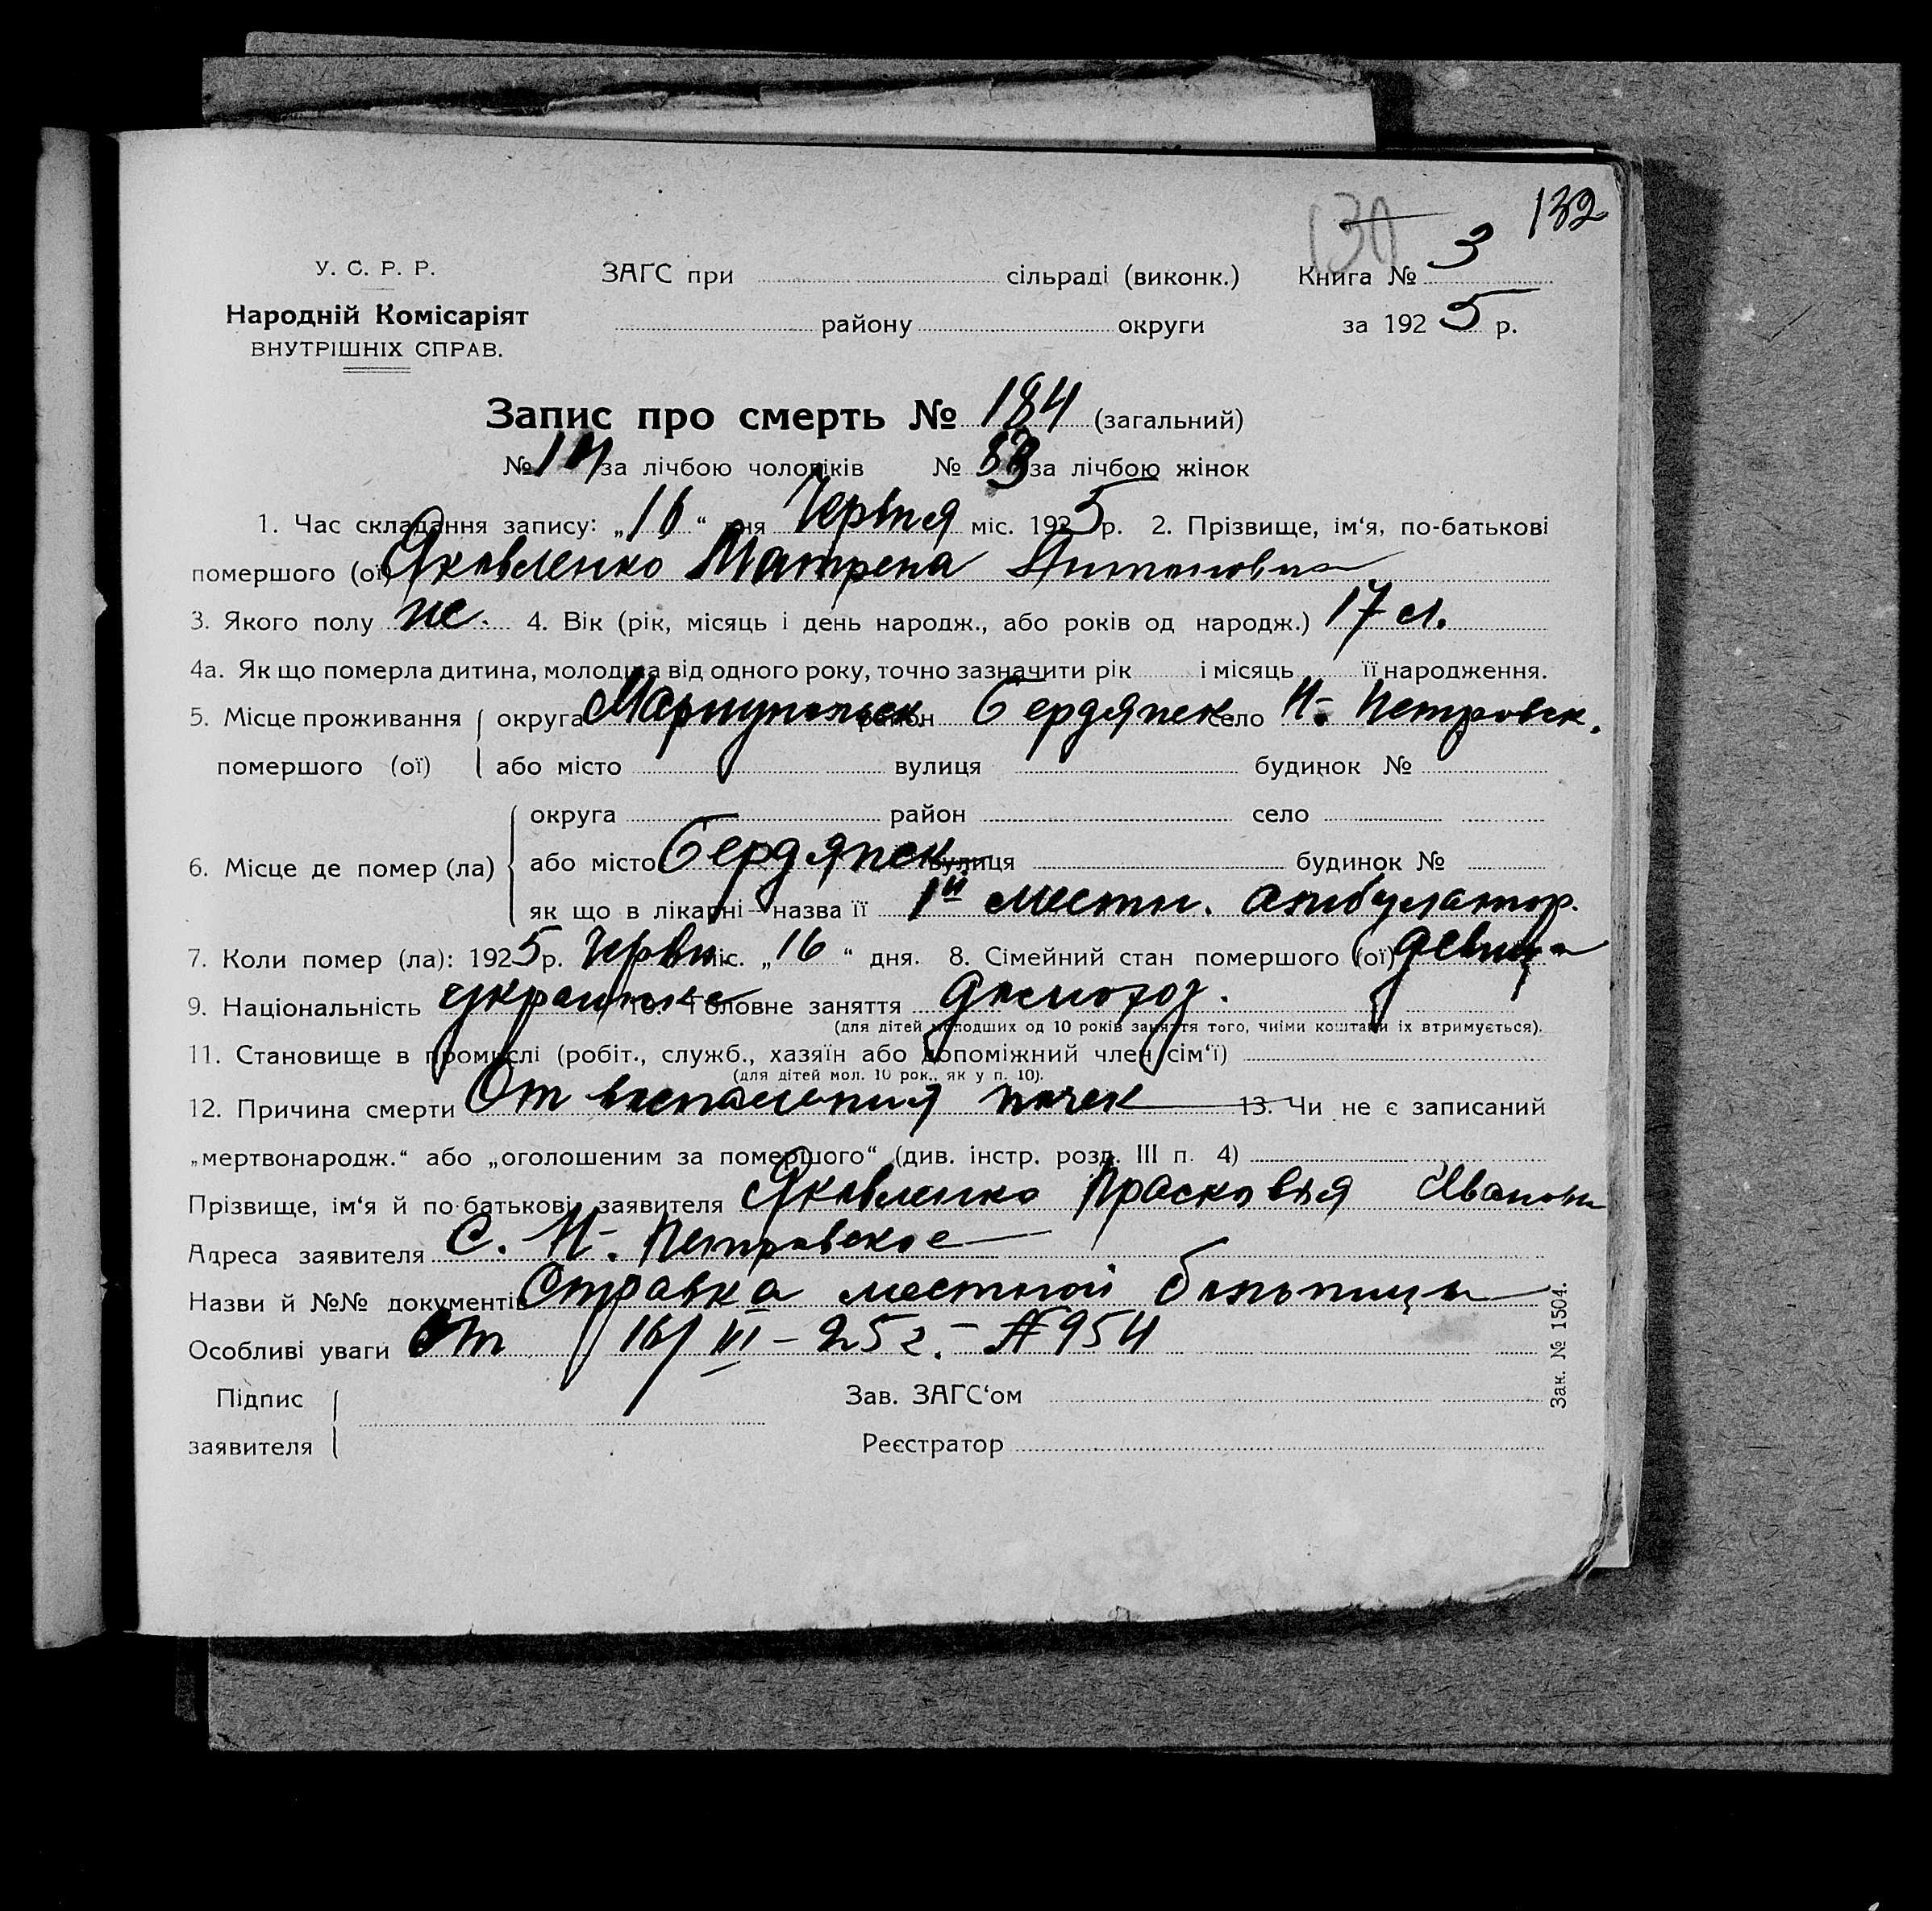 132
У. С. Р. Р. ЗАГС при сільраді (виконк.) Книга № 3
Народній Комісаріят району округи за 1925 р.
ВНУТРІШНІХ СПРАВ.
Запис про смерть № 184 (загальний)
№ за лічбою чоловіків № 83 за лічбою жінок
1. Час складання запису: „16“ дня Червня міс. 1925 р. 2. Прізвище, ім‘я, по-батькові
помершого (ої) Яковленко Матрена Антоновна
3. Якого полу же. 4. Вік (рік, місяць і день народж., або років од народж.) 17 л.
4а. Як що померла дитина, молодша від одного року, точно зазначити рік і місяць її народження.
5. Місце проживання округа Мариупольск район Бердянск село Н-Петровск.
помершого (ої) або місто вулиця будинок №
округа район село
6. Місце де помер (ла) або місто Бердянск вулиця будинок №
як що в лікарні—назва її 1й местн. амбулатор.
7. Коли помер (ла): 1925 р. Червн. міс. „16“ дня. 8. Сімейний стан помершого (ої) девица
9. Національність украинка 10. Головне заняття домохоз.
(для дітей молодших од 10 років заняття того, чиїми коштами іх втримується).
11. Становище в промислі (робіт., служб., хазяїн або допоміжний член сім‘ї)
(для дітей мол. 10 рок., як у п. 10).
12. Причина смерти От воспаления почек 13. Чи не є записаний
„мертвонародж.“ або „оголошеним за помершого“ (див. інстр. розд. III п. 4)
Прізвище, ім‘я й по-батькові заявителя Яковленко Прасковья Ивановн
Адреса заявителя С. Н-Петровское
Назви й №№ документів Справка местной больницы
Особливі уваги от 16/VI–25 г. – №954
Підпис Зав. ЗАГС‘ом
заявителя Реєстратор
Зак. № 1504.